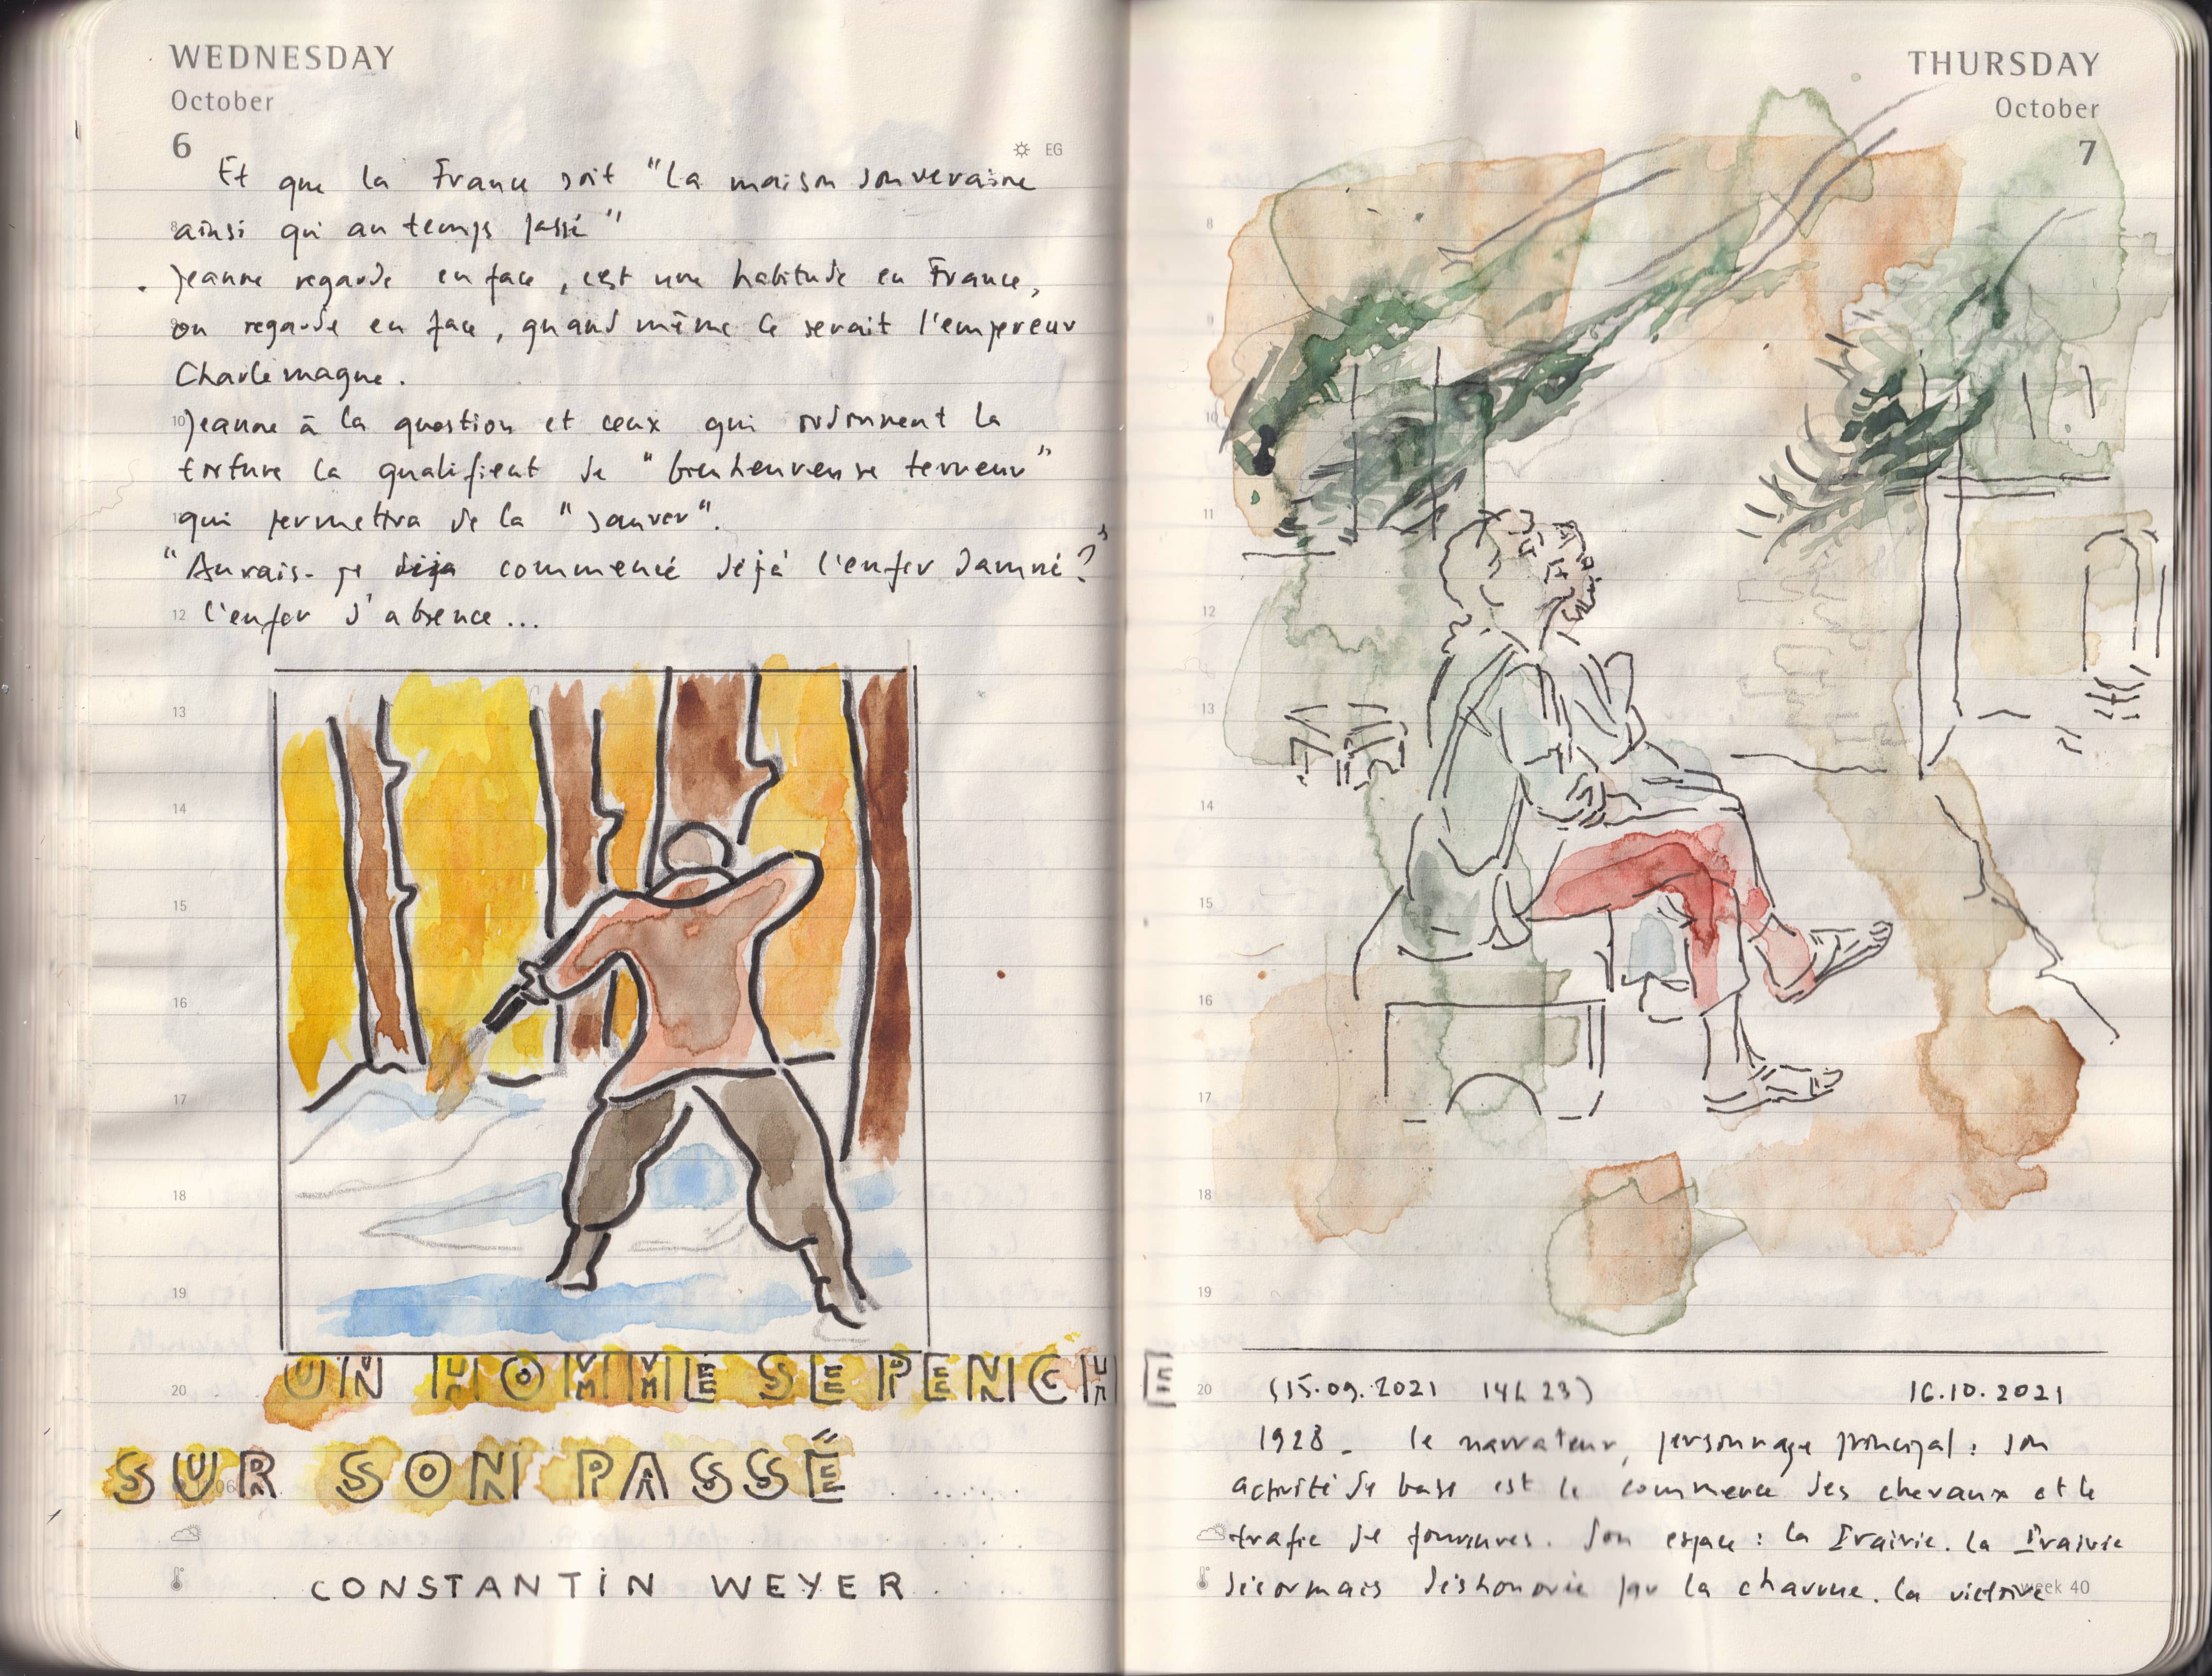 WEDNESDAY
October
6
EG
Et que la France soit "La maison souveraine
8 ainsi qu'au temps passé"
Jeanne regarde en face, c'est une habitude en France,
9 on regarde en face, quand même ce serait l'empereur
Charlemagne.
10 Jeanne à la question et ceux qui ordonnent la
torture la qualifient de "bienheureuse terreur"
11 qui permettra de la "sauver".
"Aurais-je déja commencé déjà l'enfer damné?"
12 l'enfer d'absence...
13
14
15
16
17
18
19
20
UN HOMME SE PENCHE
SUR SON PASSÉ
CONSTANTIN WEYER
THURSDAY
October
7
8
9
10
11
12
13
14
15
16
17
18
19
20 (15.09.2021 14h23) 16.10.2021
1928 - le narrateur, personnage principal : son
activité de base est le commerce des chevaux et le
trafic de fourrures. Son espace : la Prairie. La Prairie
désormais déshonorée par la charrue. La victoire
week 40